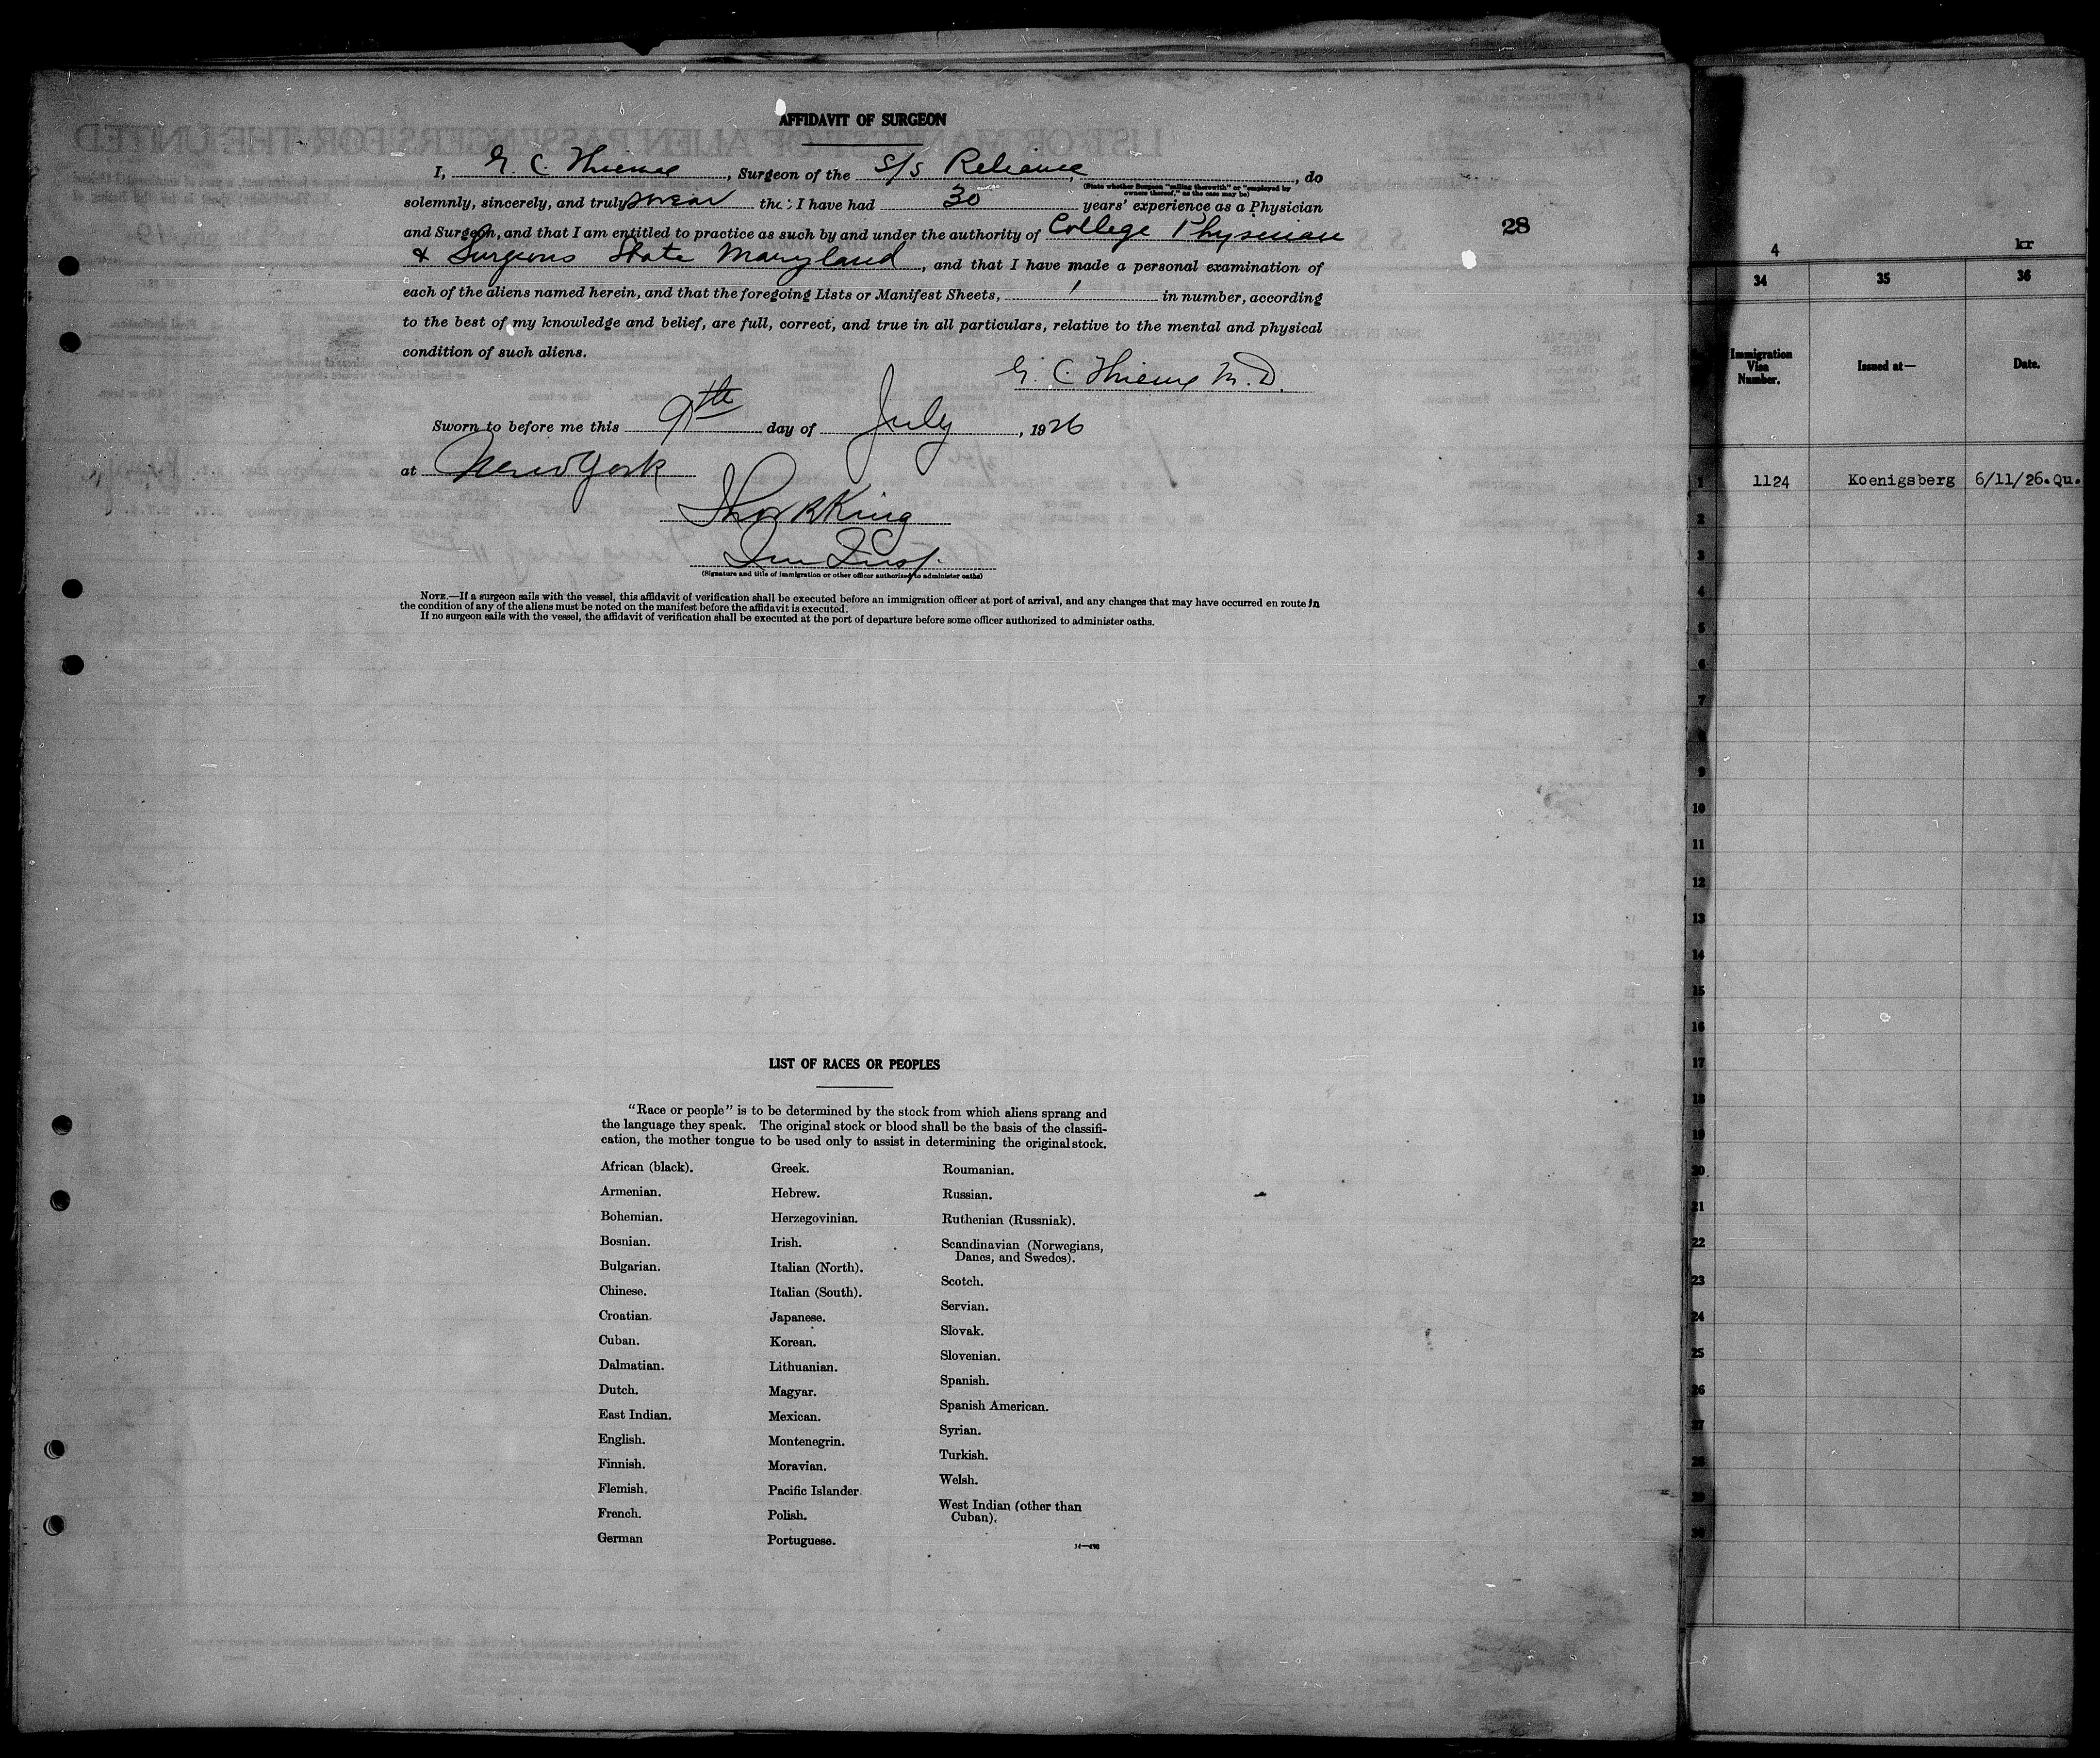 AFFIDAVIT OF SURGEON
I, G. C. Thieme, Surgeon of the S/S Reliance, do
(State whether Surgeon "sailing therewith" or "employed by
owners thereof," as the case may be)
solemnly, sincerely, and truly swear the: I have had 30 years' experience as a Physician
and Surgeon, and that I am entitled to practice as such by and under the authority of College Physician
& Surgeons State Maryland, and that I have made a personal examination of
each of the aliens named herein, and that the foregoing Lists or Manifest Sheets, 1 in number, according
to the best of my knowledge and belief, are full, correct, and true in all particulars, relative to the mental and physical
condition of such aliens.
G. C. Thieme M.D.
Sworn to before me this 9th day of July, 1926
at New York
King
Imm Insp.
(Signature and title of immigration or other officer authorized to administer oaths)
NOTE.—If a surgeon sails with the vessel, this affidavit of verification shall be executed before an immigration officer at port of arrival, and any changes that may have occurred en route in
the condition of any of the aliens must be noted on the manifest before the affidavit is executed.
If no surgeon sails with the vessel, the affidavit of verification shall be executed at the port of departure before some officer authorized to administer oaths.
28
LIST OF RACES OR PEOPLES
"Race or people" is to be determined by the stock from which aliens sprang and
the language they speak. The original stock or blood shall be the basis of the classifi-
cation, the mother tongue to be used only to assist in determining the original stock.
African (black).
Armenian.
Bohemian.
Bosnian.
Bulgarian.
Chinese.
Croatian.
Cuban.
Dalmatian.
Dutch.
East Indian.
English.
Finnish.
Flemish.
French.
German
Greek.
Hebrew.
Herzegovinian.
Irish.
Italian (North).
Italian (South).
Japanese.
Korean.
Lithuanian.
Magyar.
Mexican.
Montenegrin.
Moravian.
Pacific Islander.
Polish.
Portuguese.
Roumanian.
Russian.
Ruthenian (Russniak).
Scandinavian (Norwegians,
Danes, and Swedes).
Scotch.
Servian.
Slovak.
Slovenian.
Spanish.
Spanish American.
Syrian.
Turkish.
Welsh.
West Indian (other than
Cuban).
4 kr
34 35 36
Immigration
Visa
Number.
Issued at—
Date.
1 1124 Koenigsberg 6/11/26.Qu.
2
3
4
5
6
7
8
9
10
11
12
13
14
15
16
17
18
19
20
21
22
23
24
25
26
27
28
29
30